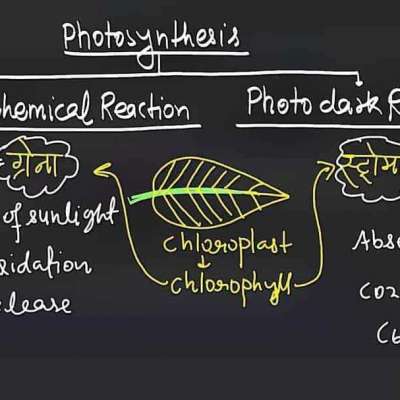 Photosynthesis
hemical Reaction
Photo dark R
ग्रेना
स्ट्रोम
of sunlight
idation
lease
chloroplast
chlorophyll
Abs
CO2
C6